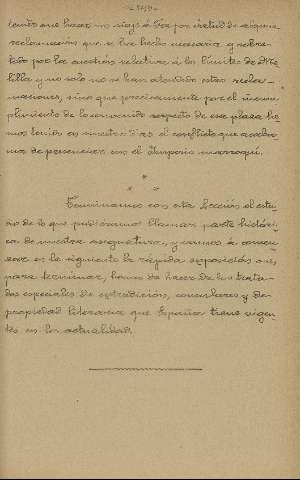 tenido que hacer un viaje á Fez por virtud de alguna
reclamación que se ha hecho necesaria y sobre
todo por la cuestión relativa á los límites de Me
lilla y no solo no han atendido estas recla-
maciones, sino que precisamente por el incum
plimiento de lo convenido respecto de esa plaza he
mos tenido en nuestros días el conflicto que acaba
mos de presenciar en el Imperio marroquí.
* * *
Terminamos con esta Lección el estu
dio de lo que pudiéramos llamar parte históri
ca de nuestra asignatura, y vamos á comen
zar en la siguiente la rápida exposición que,
para terminar, hemos de hacer de los trata-
dos especiales de extradición, consulares y de
propiedad literaria que España tiene vigen
tes en la actualidad.